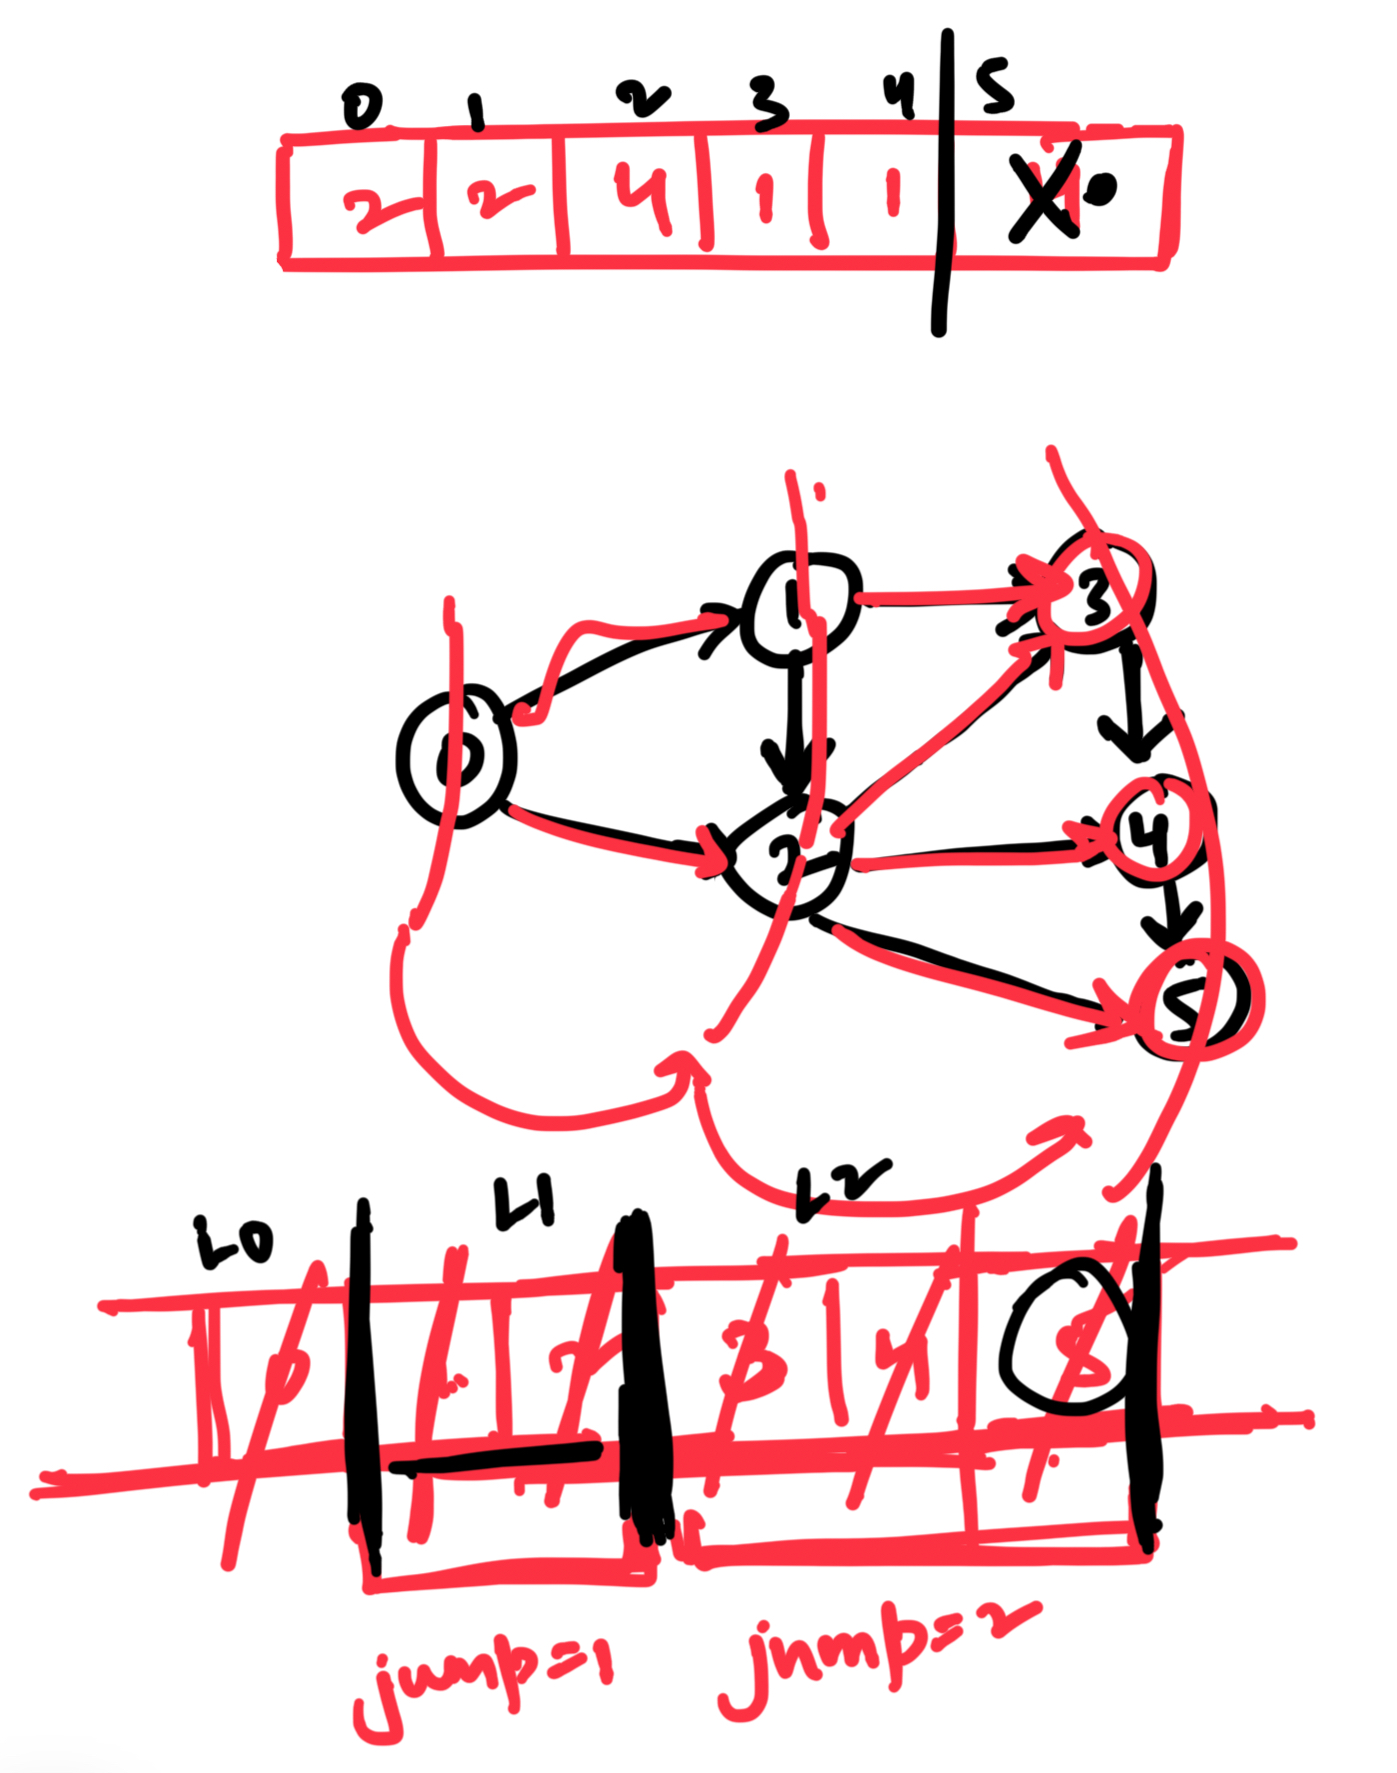 0 1 2 3 4 5
2 2 4 1 1
1 3
0
2 4
5
L0 L1 L2
0 2 3 4 5
jump=1 jump=2